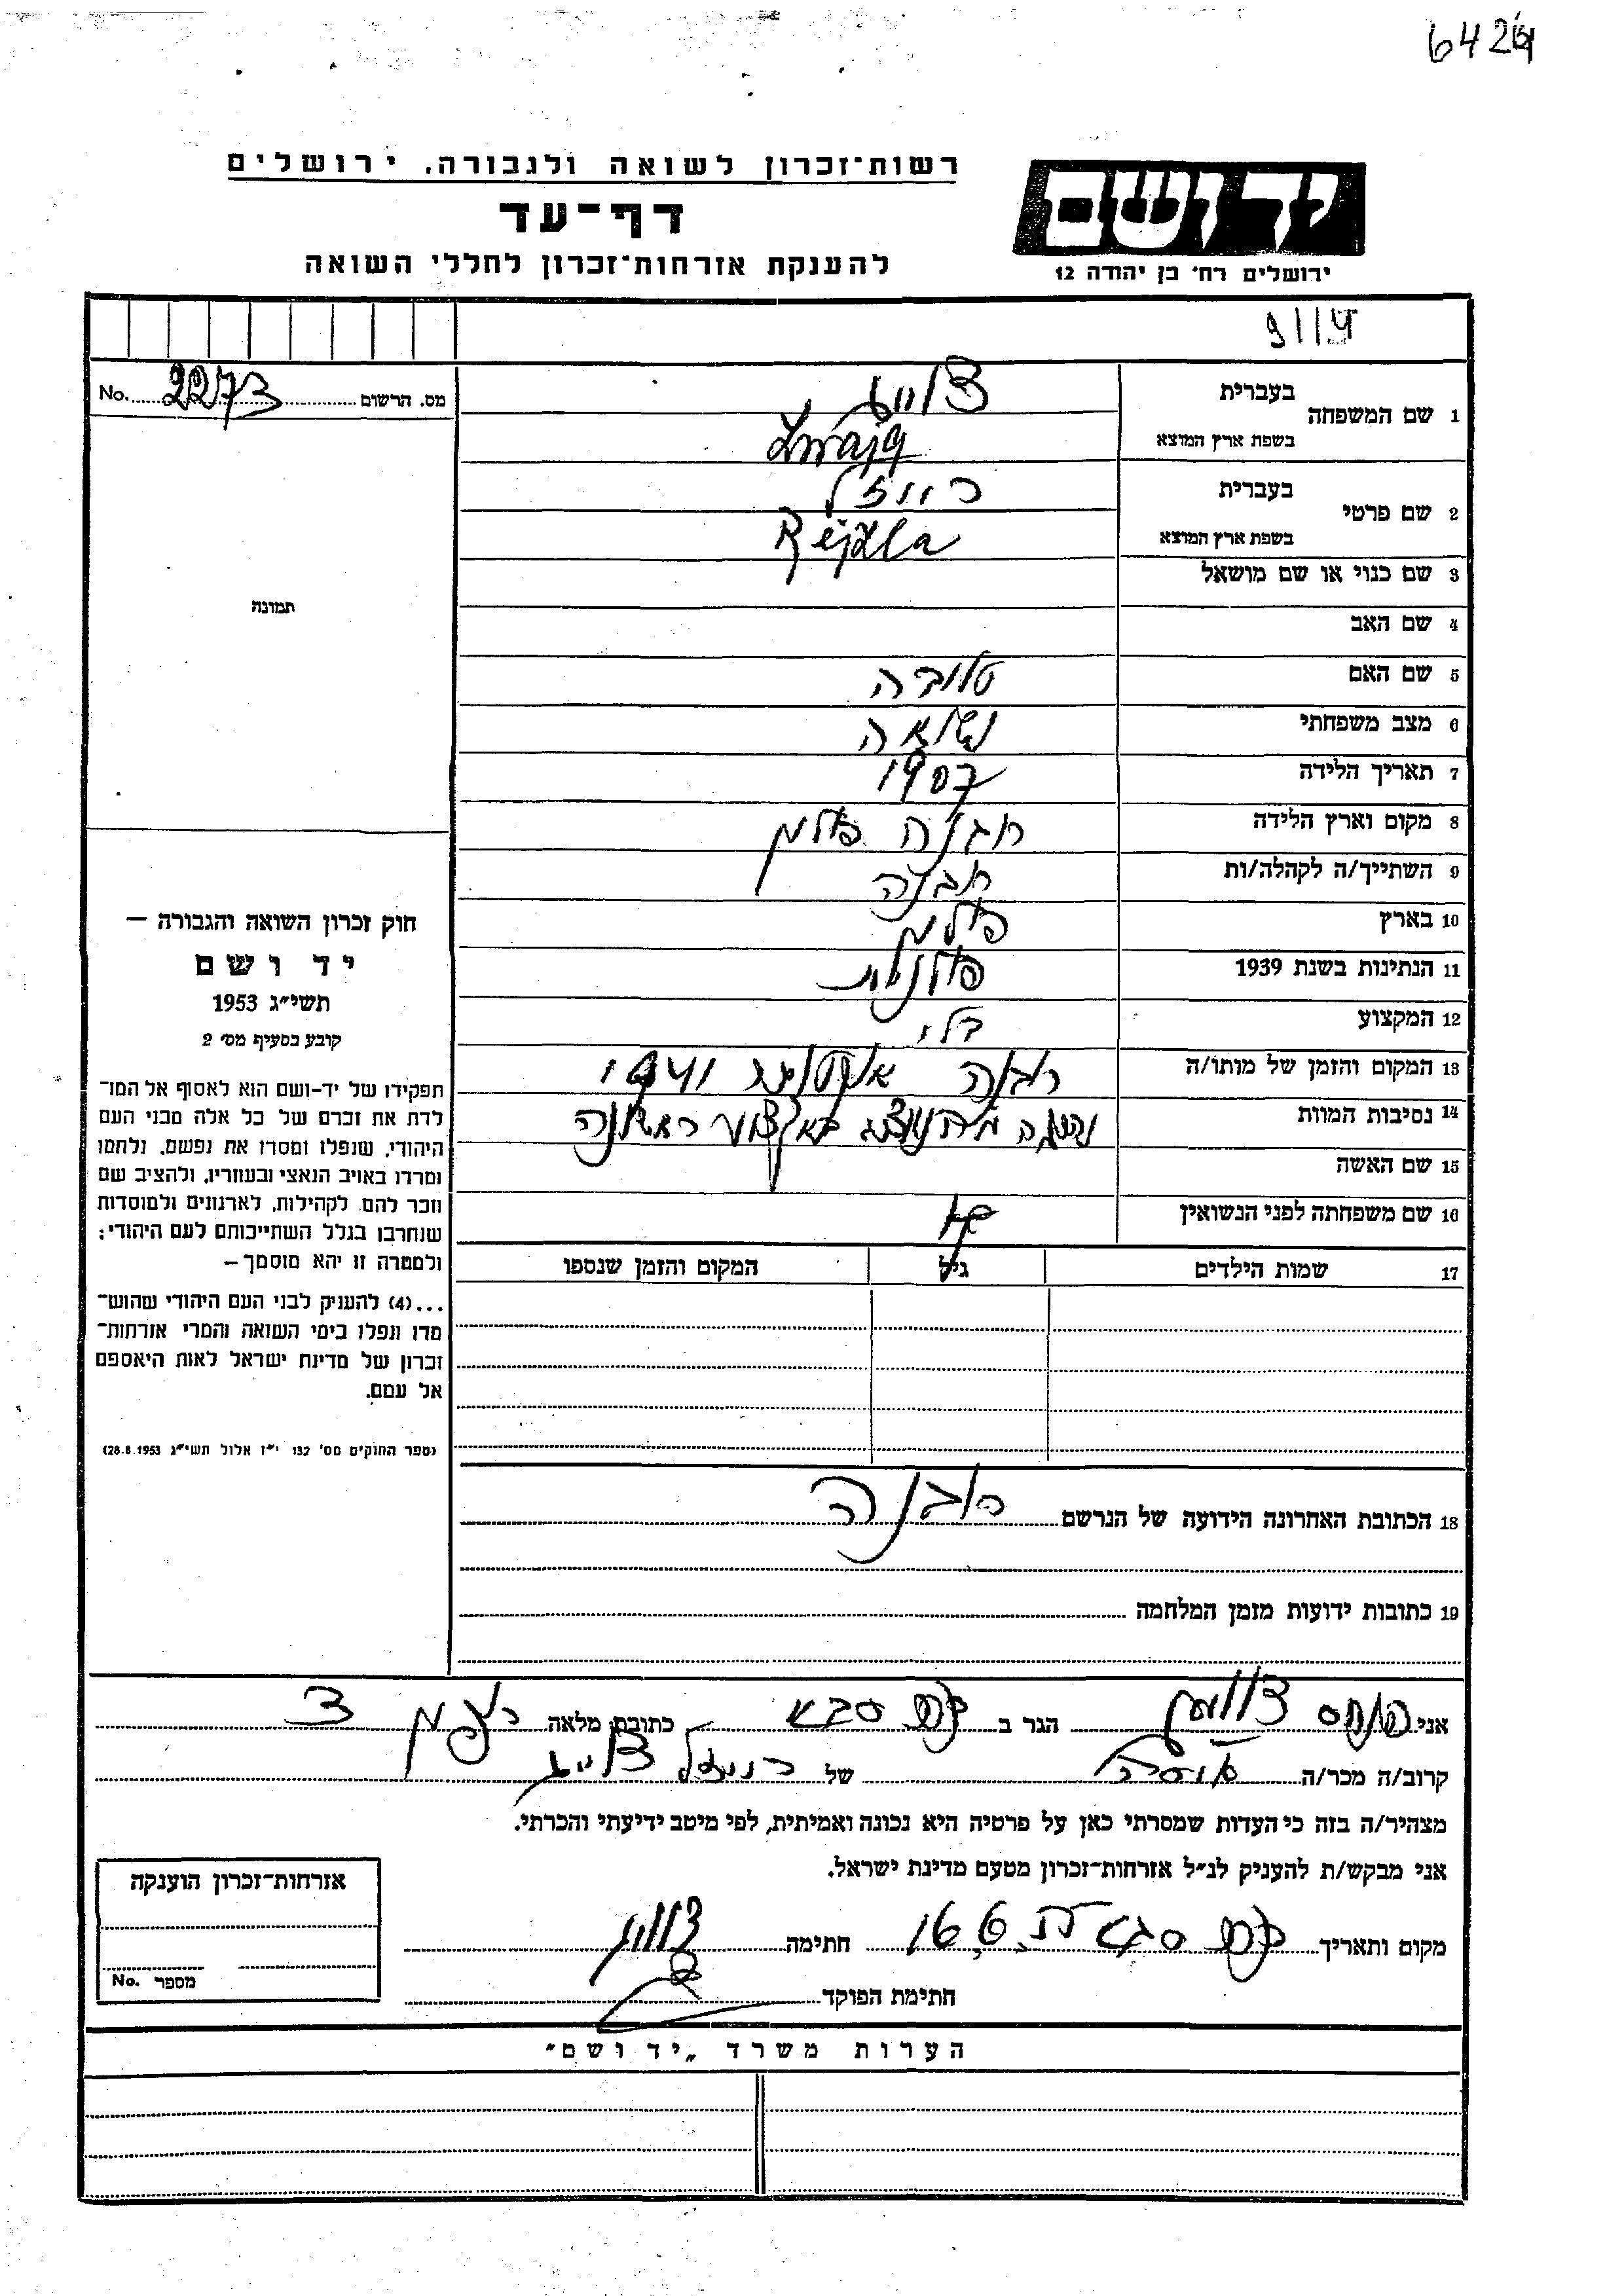 רשות־זכרון לשואה ולגבורה, ירושלים
דף־עד
להענקת אזרחות־זכרון לחללי השואה
יד ושם
ירושלים רח' בן יהודה 12
מס. הרשום 2273 No.
1 שם המשפחה בעברית צווייג
בשפת ארץ המוצא Zwajg
2 שם פרטי בעברית רייזל
בשפת ארץ המוצא Rejzla
3 שם כנוי או שם מושאל
4 שם האב
5 שם האם טובה
6 מצב משפחתי נשואה
7 תאריך הלידה 1907
8 מקום וארץ הלידה פולין
9 השתייך/ה לקהלה/ות
10 בארץ פולין
11 הנתינות בשנת 1939 פולנית
12 המקצוע
13 המקום והזמן של מותו/ה אוקטובר 1941
14 נסיבות המוות ראשונה
15 שם האשה
16 שם משפחתה לפני הנשואין
17 שמות הילדים גיל המקום והזמן שנספו
18 הכתובת האחרונה הידועה של הנרשם
19 כתובות ידועות מזמן המלחמה
תמונה
חוק זכרון השואה והגבורה —
יד ושם
תשי"ג 1953
קובע בסעיף מס' 2
תפקידו של יד-ושם הוא לאסוף אל המו־
לדת את זכרם של כל אלה מבני העם
היהודי, שנפלו ומסרו את נפשם, נלחמו
ומרדו באויב הנאצי ובעוזריו, ולהציב שם
וזכר להם, לקהילות, לארגונים ולמוסדות
שנחרבו בגלל השתייכותם לעם היהודי;
ולמטרה זו יהא מוסמך —
...(4) להעניק לבני העם היהודי שהוש־
מדו ונפלו בימי השואה והמרי אזרחות־
זכרון של מדינת ישראל לאות היאספם
אל עמם.
(ספר החוקים מס' 132 י"ז אלול תשי"ג 28.8.1953)
אני פנחס צווייג הגר ב כפר סבא כתובת מלאה
קרוב/ה מכר/ה של רייזל צווייג
מצהיר/ה בזה כי העדות שמסרתי כאן על פרטיה היא נכונה ואמיתית, לפי מיטב ידיעתי והכרתי.
אני מבקש/ת להעניק לנ"ל אזרחות־זכרון מטעם מדינת ישראל.
מקום ותאריך כפר סבא 16.6. חתימה צווייג
חתימת הפוקד
אזרחות־זכרון הוענקה
מספר No.
הערות משרד „יד ושם"